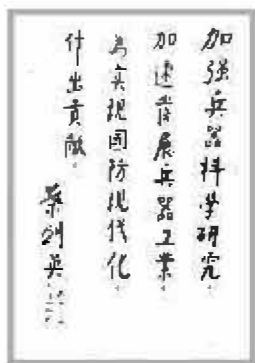 加强兵器科学研究
加速发展兵器工業
為实现國防现代化
作出貢献
葉剑英